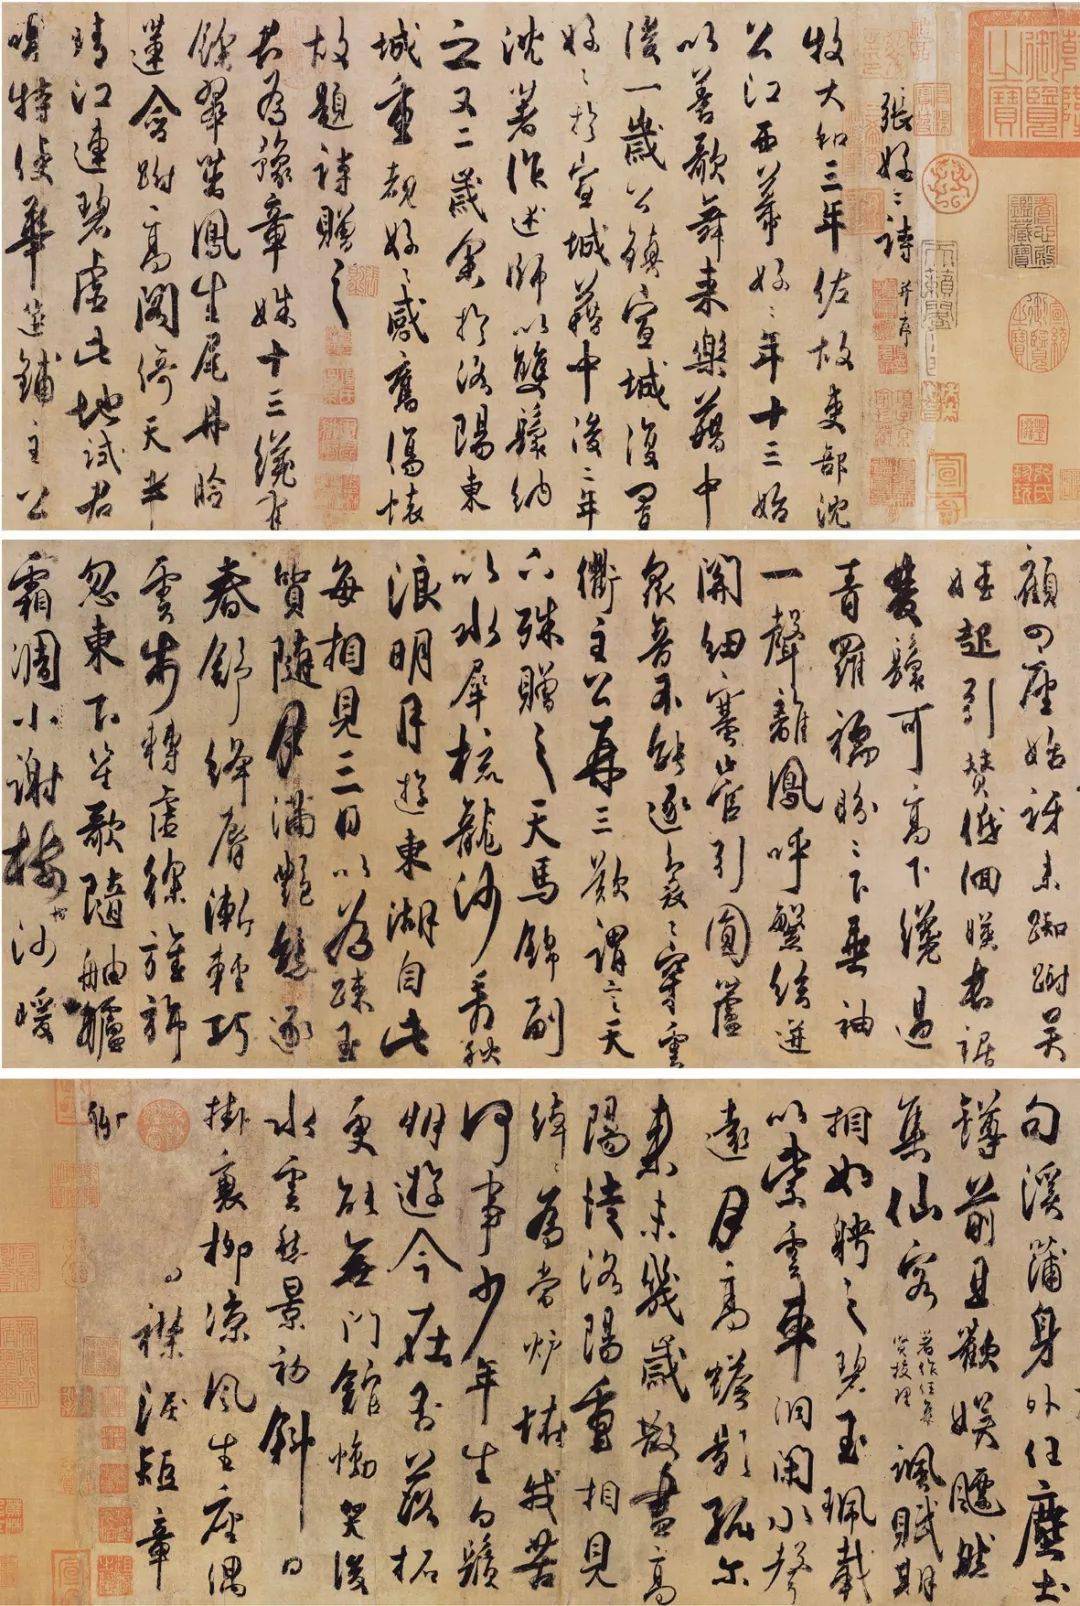 張好好詩并序
牧大和三年佐故吏部沈
公江西幕好好年十三始
以善歌舞來樂籍中
後一歲公鎮宣城復置
好好於宣城籍中後二年
沈著作述師以雙鬟納
之又二歲余於洛陽東
城重覩好好感舊傷懷
故題詩贈之
君為豫章姝十三纔有
餘翠茁鳳生尾丹臉
蓮含跗高閣倚天半
晴江連碧虛此地試君
唱特使華筵鋪主公
顧四座始訝來踟躕吳
娃起引贊低徊映長裾
雙鬟可高下纔過
青羅襦盼盼下垂袖
一聲離鳳呼繁絃迸
關紐塞管引圓蘆
衆音不能逐裊裊穿雲
衢主公再三歎謂言天
下殊贈之天馬錦副
以水犀梳龍沙看秋
浪明月遊東湖自此
每相見三日以為踈玉
質隨月滿艷態逐
春舒絳脣漸輕巧
雲步轉虛徐旌旆
忽東下笙歌隨舳艫
霜凋小謝樓樹沙暖
句溪蒲身外任塵土
罇前且歡娛飄然
集仙客著作任集賢校理諷賦期
相如聘之碧玉珮載
以紫雲車洞閉水聲
遠月高蟾影孤尒
來未幾歲散盡高
陽徒洛陽重相見
綽綽為當爐恠我苦
何事少年生白鬚
朋遊今在否落拓
更能無門館慟哭後
水雲愁景初斜日
掛衰柳涼風生座隅
襟淚短章
聊